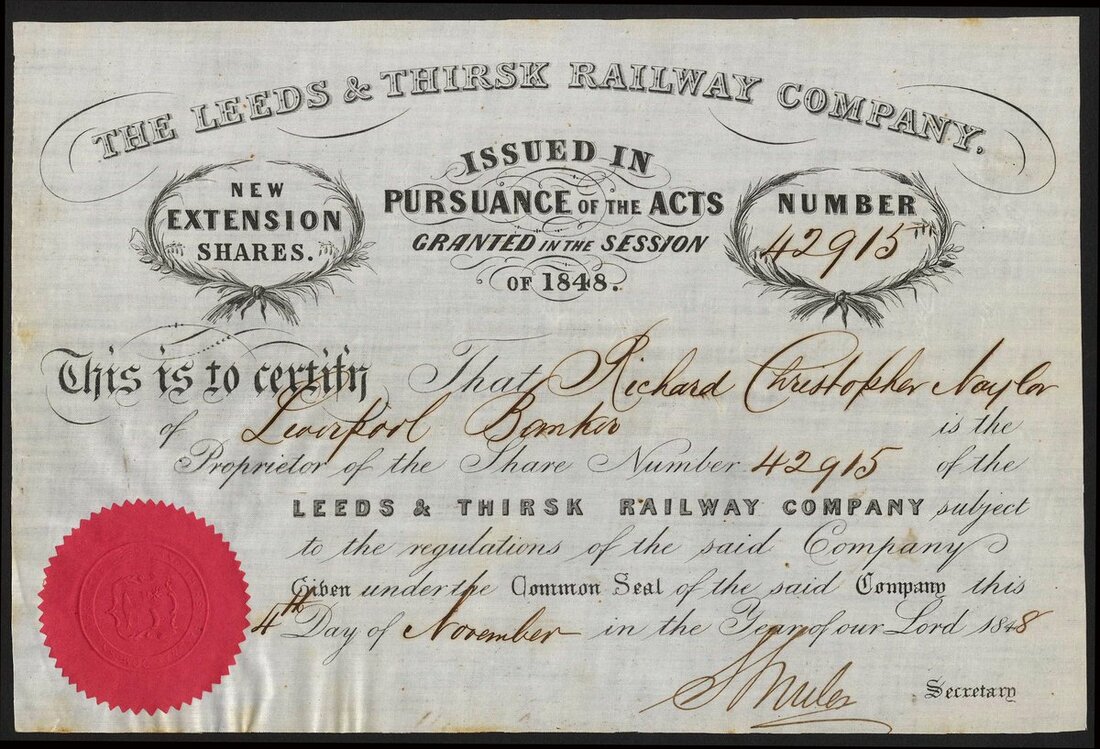 THE LEEDS & THIRSK RAILWAY COMPANY.
NEW
EXTENSION
SHARES.
ISSUED IN
PURSUANCE OF THE ACTS
GRANTED IN THE SESSION
OF 1848.
NUMBER
42915TH
This is to certify That Richard Christopher Naylor
of Liverpool Banker is the
Proprietor of the Share Number 42915 of the
LEEDS & THIRSK RAILWAY COMPANY subject
to the regulations of the said Company
Given under the Common Seal of the said Company this
4th Day of November in the Year of our Lord 1848
S Smiles Secretary